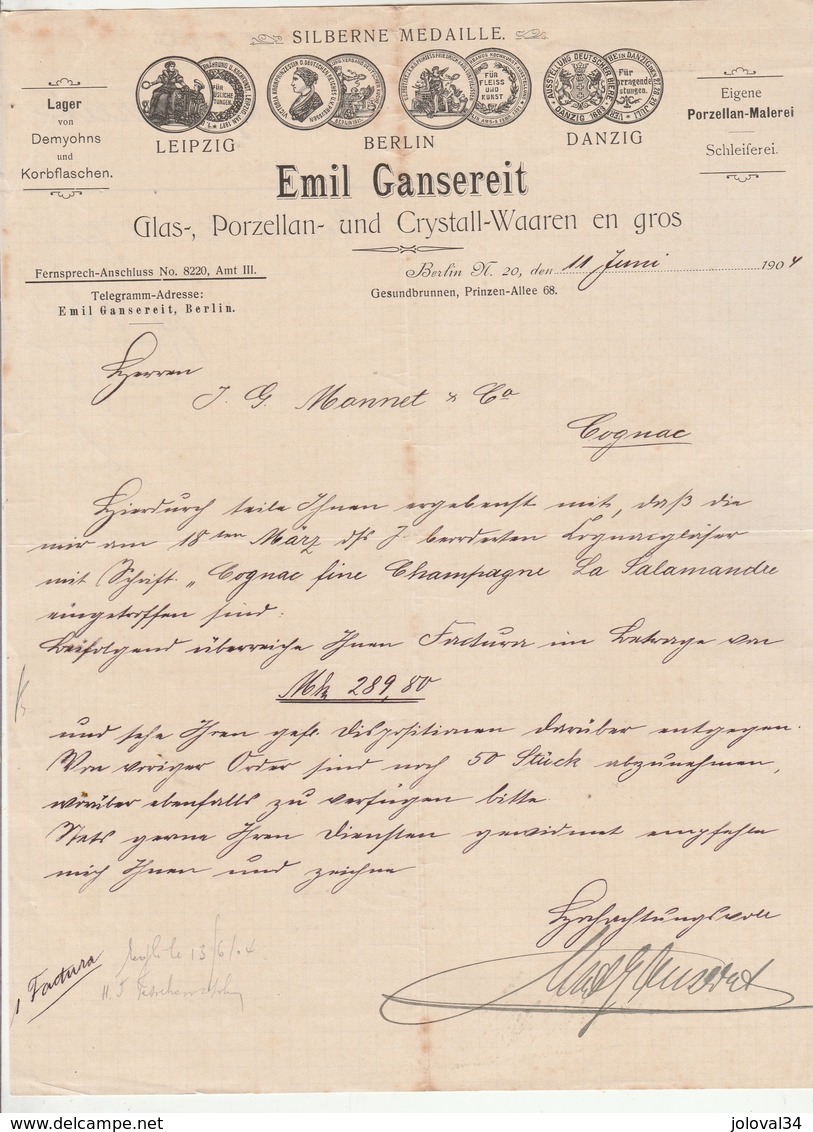 SILBERNE MEDAILLE.
LEIPZIG
BERLIN
DANZIG
FÜR FLEISS UND KUNST
Lager
von
Demyohns
und
Korbflaschen.
Eigene
Porzellan-Malerei
Schleiferei.
Emil Gansereit
Glas-, Porzellan- und Crystall-Waaren en gros
Fernsprech-Anschluss No. 8220, Amt III.
Telegramm-Adresse:
Emil Gansereit, Berlin.
Berlin N. 20, den 11 Juni 1904
Gesundbrunnen, Prinzen-Allee 68.
Herren
J. G. Monnet & Co
Cognac
Hierdurch teile Ihnen ergebenst mit, daß die
mir am 18ten März ds J. beorderten Cognacgläser
mit Schrift „Cognac fine Champagne La Salamandre
eingetroffen sind.
Beifolgend überreiche Ihnen Factura im Betrage von
Mk 289,80
und sehe Ihren gefl. Dispositionen darüber entgegen.
Von voriger Order sind noch 50 Stück abzunehmen,
worüber ebenfalls zu verfügen bitte.
Stets gerne Ihren Diensten gewidmet empfehle
mich Ihnen und zeichne
Hochachtungsvoll
1 Factura
13/6/04
delcampe.net
joloval34